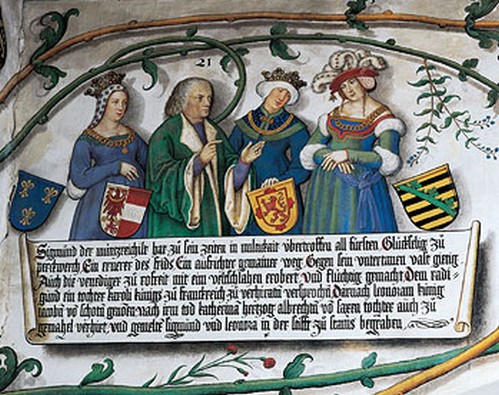 21
Sigmund der muntzreichist hat zu sein zeiten in miltikait ubertroffen all fursten Gluckselig zu
perckwerch Ein ernerer des frids Ein aufrichter gemainer weg Gegen sein untertanen vast gietig
Auch die venediger zu rofreit mit ein veltschlahen erobert und fluchtig gemacht Dem
ein tochter karoli kunigs zu franckreich zu verhiratn versprochn Darnach leonoram kunig
iacobn vo schotn genomen nach irm tod katherina hertzog albrechtn vo saxen tochter auch zu
gemahel verhirt und gemelte sigmund und leonora in der stifft zu stams begraben